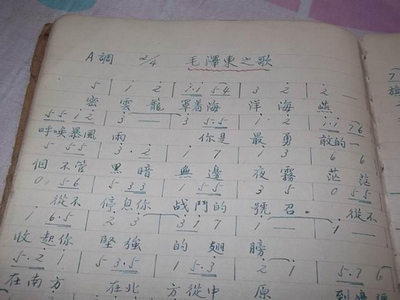 A調 2/4 毛澤東之歌
5 | 1 2 | 1·1 5 4 | 3 2 | 2 —
密雲籠罩着海洋海燕
5 5 1 2 | 3 — | 3 5·5 | 1 2 | 1·1 7 6
呼喚暴風雨 你是最勇敢的一
5 5 5 | 3 · 2 | 1 7 | 1 3 | 6 6
個不管黑暗無邊夜霧茫茫
0 5 6 | 5 3 3 | 1 5 5 | 3 5 | 0 5 5
從不停息你战鬥的號召 從不
1 6·5 | 2 3 | 3 1 7 | 1 — | 3 —
收起你堅強的翅膀
5·2 1 | 5 3·5 | 1 5·3 | 2 1 | 5·7 6
在南方 在北方從中原